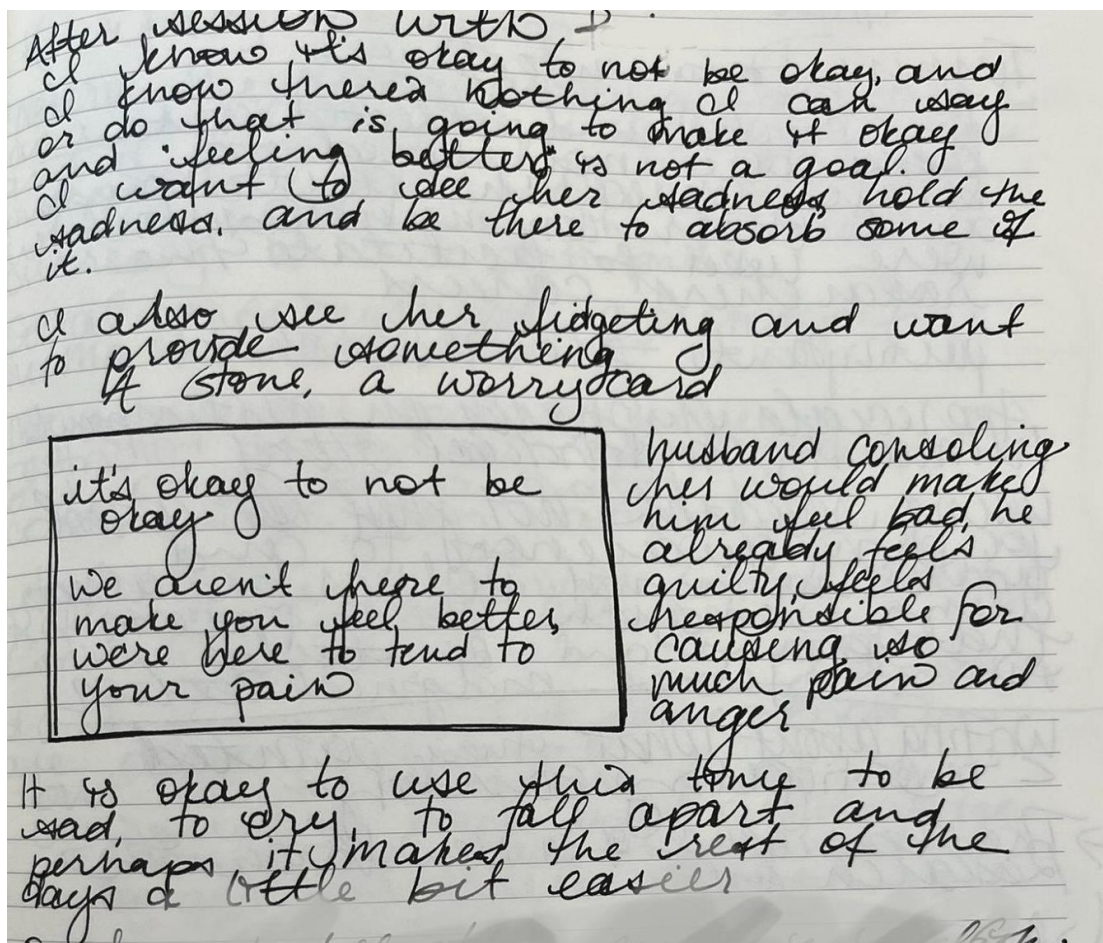 After session with D.
I know it's okay to not be okay, and
I know there's nothing I can say
or do that is going to make it okay
and "feeling better" is not a goal.
I want to see her sadness, hold the
sadness, and be there to absorb some of
it.
I also see her fidgeting and want
to provide something
A stone, a worry card
it's okay to not be
okay
We aren't here to
make you feel better,
we're here to tend to
your pain
husband consoling
her would make
him feel bad, he
already feels
guilty, feels
responsible for
causing so
much pain and
anger
It is okay to use this time to be
sad, to cry, to fall apart and
perhaps it makes the rest of the
days a little bit easier